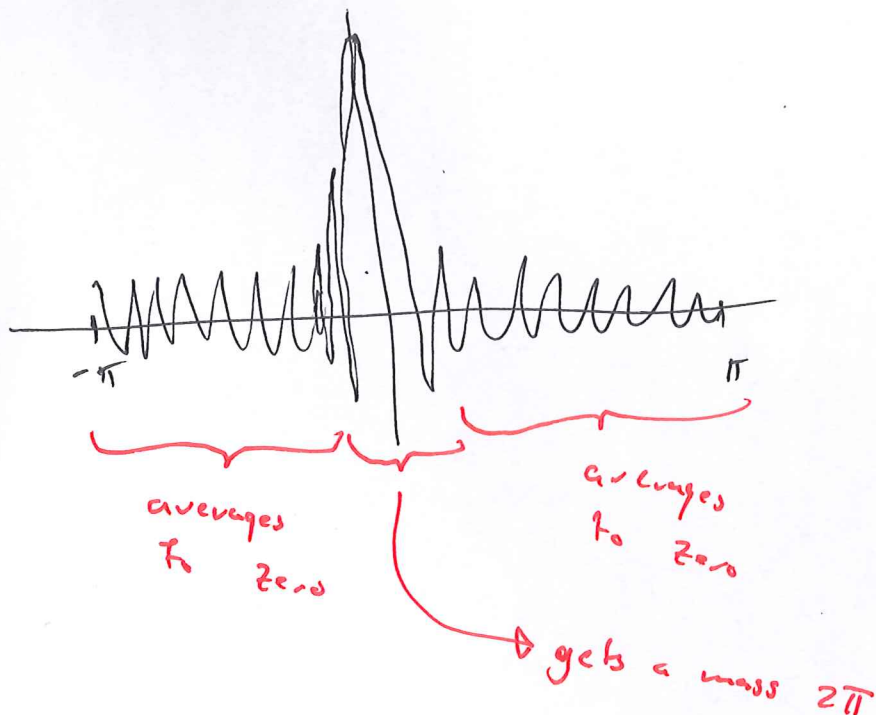 -π
π
averages
to zero
averages
to zero
gets a mass 2π